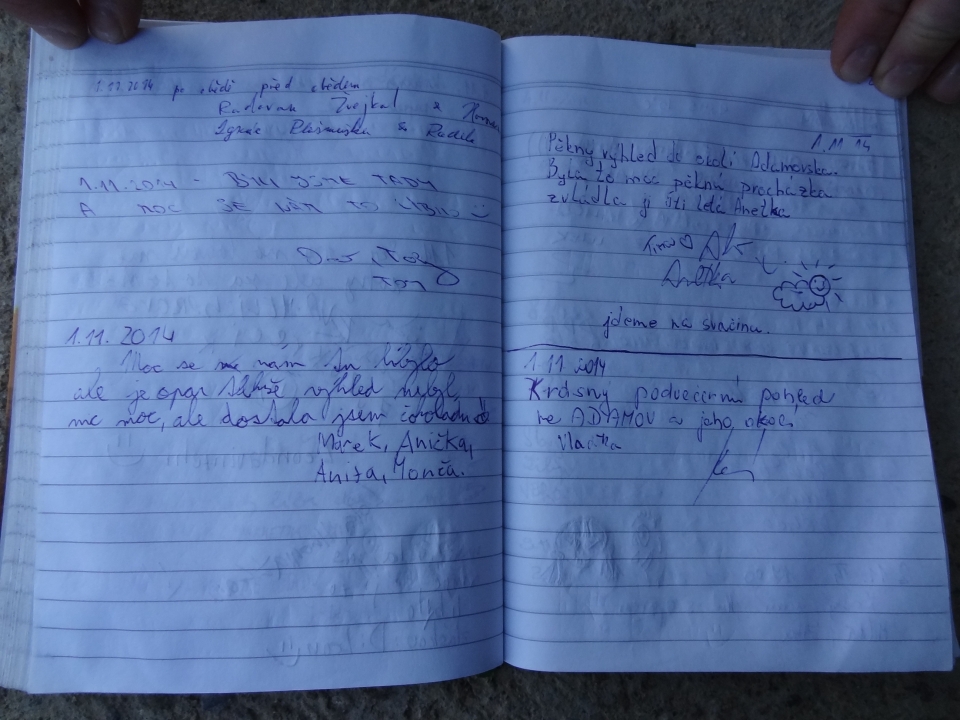 1.11.2014 po obědě před obědem
Radovan Žvejkal a
Ignác a Radek
1.11.2014 - BYLI JSME TADY
A MOC SE NÁM TO LÍBILO
Tom
1.11.2014
Moc se nám líbilo
ale je opar výhled nebyl
nic moc, ale dostala jsem čokoládu
Marek, Anička,
Anita, Monča.
1.11 14
Pěkný výhled do okolí Adamovska.
Byla to moc pěkná procházka
zvládla ji 4 letá Anetka
Anetka
jdeme na svačinu.
1 11 2014
Krásný podvečerní pohled
ve ADAMOV a jeho okolí
Vlastka